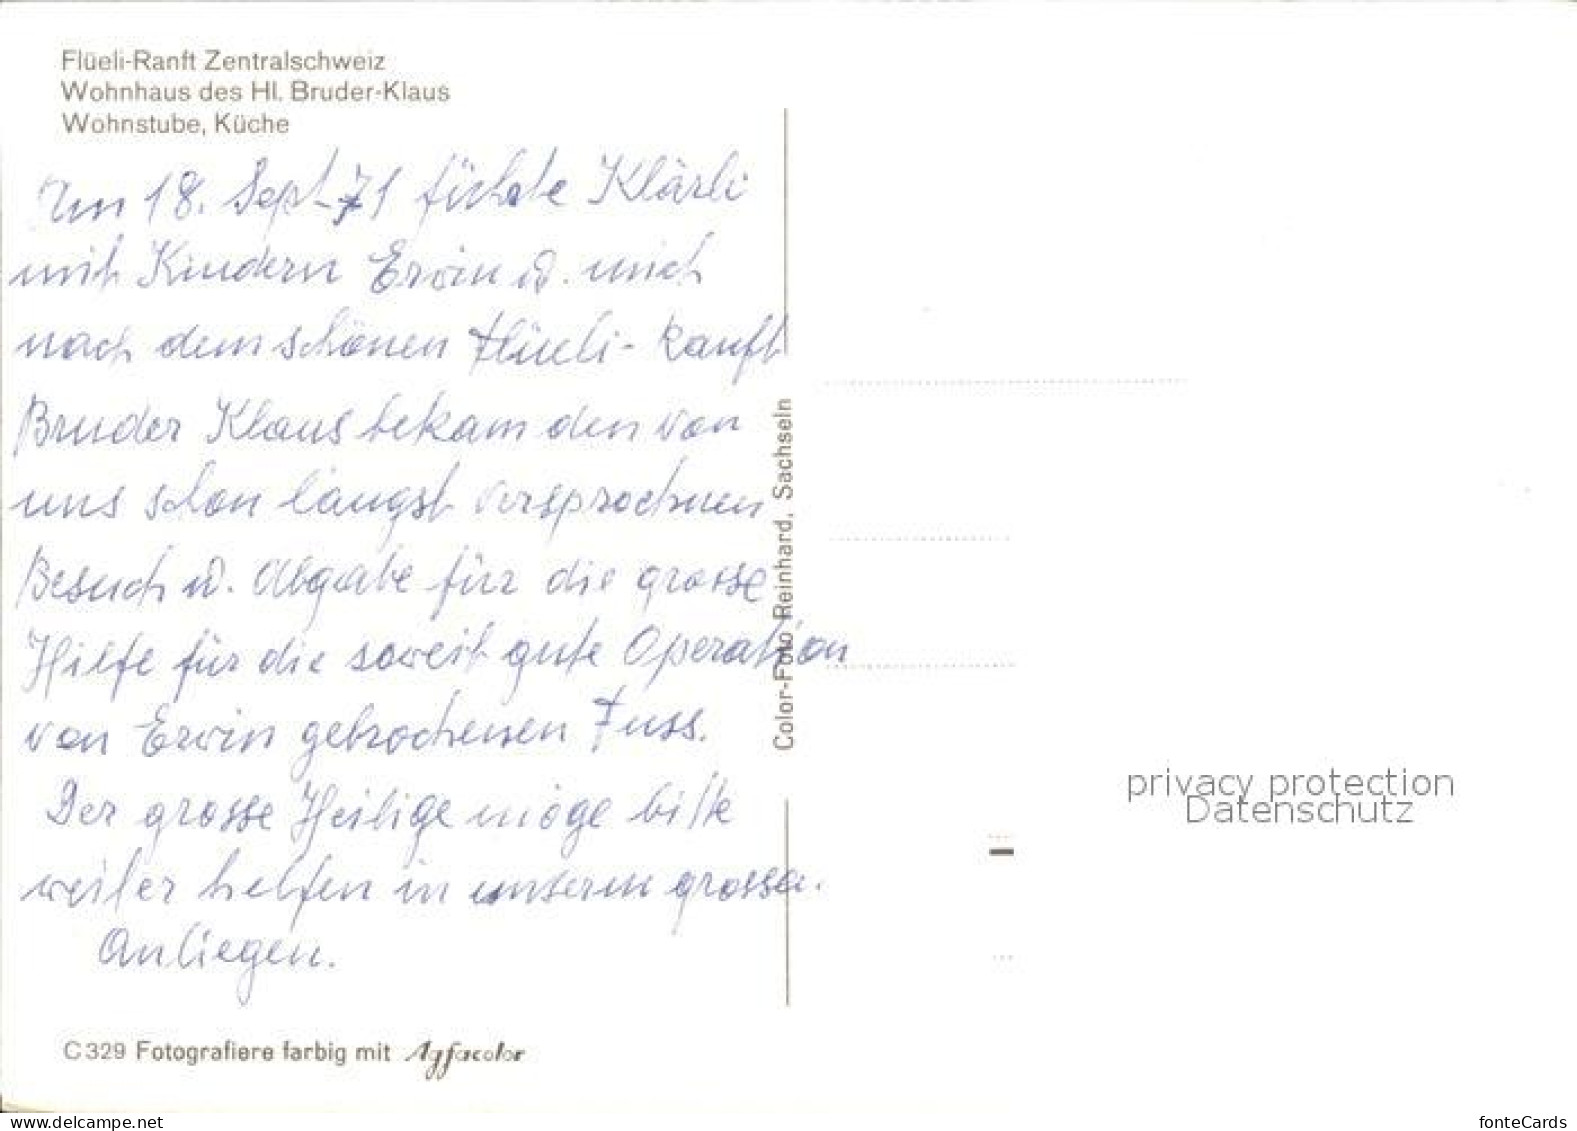 Flüeli-Ranft Zentralschweiz
Wohnhaus des Hl. Bruder-Klaus
Wohnstube, Küche
Am 18. Sept. 71 führte Klärli
mit Kindern Erwin u. mich
nach dem schönen Flüeli-Ranft
Bruder Klaus bekam den von
uns schon längst versprochnen
Besuch u. Abgabe für die grosse
Hilfe für die soweit gute Operation
von Erwin gebrochenen Fuss.
Der grosse Heilige möge bitte
weiter helfen in unserm grossen
Anliegen.
Color-Foto Reinhard, Sachseln
privacy protection
Datenschutz
C 329 Fotografiere farbig mit Agfacolor
www.delcampe.net
fonteCards